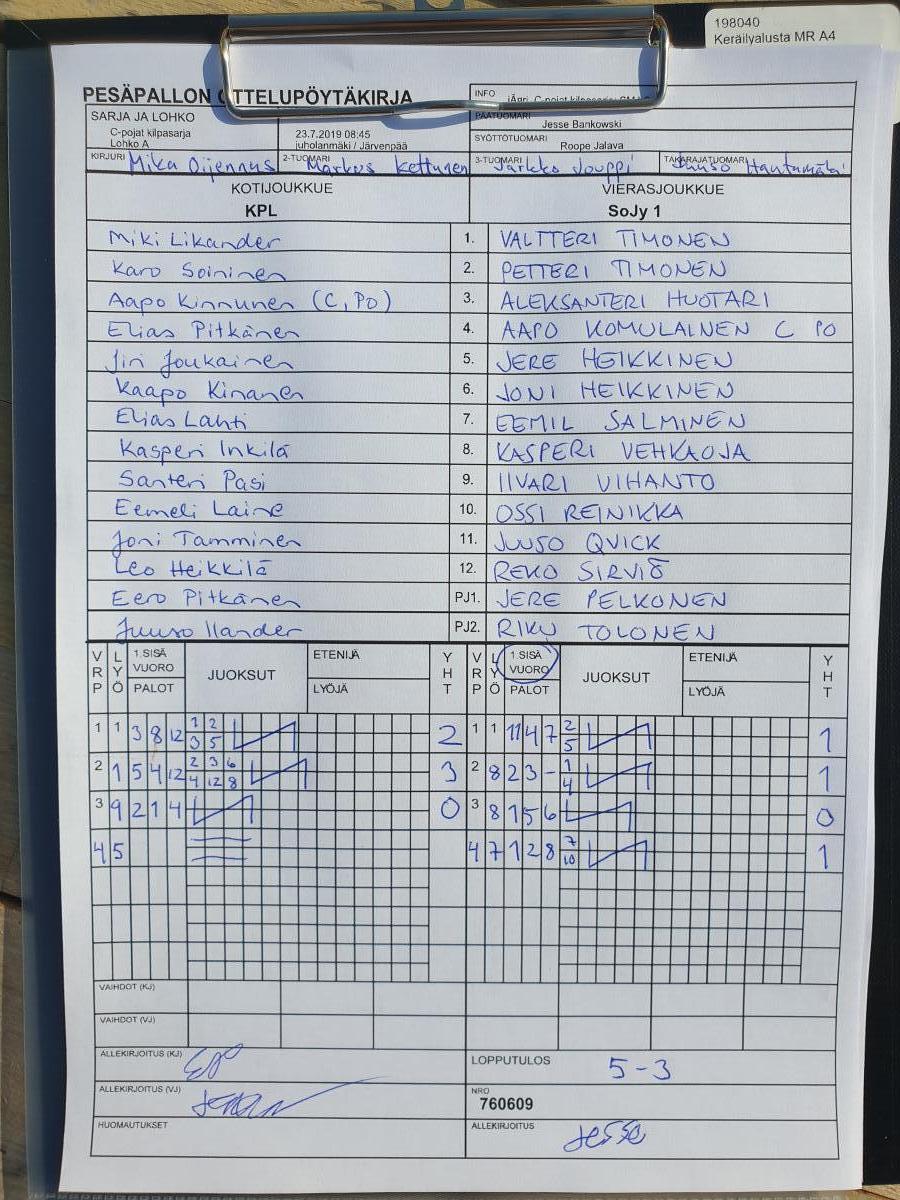 198040
Keräilyalusta MR A4
PESÄPALLON OTTELUPÖYTÄKIRJA
INFO
SARJA JA LOHKO
C-pojat kilpasarja
Lohko A
23.7.2019 08:45
juholanmäki / Järvenpää
PÄÄTUOMARI
Jesse Bankowski
SYÖTTÖTUOMARI
Roope Jalava
KIRJURI Mika Oijennus 2-TUOMARI Markus Kettunen 3-TUOMARI Jarkko Jouppi TAKARAJATUOMARI Juuso Hautamäki
KOTIJOUKKUE VIERASJOUKKUE
KPL SoJy 1
Miki Likander 1. VALTTERI TIMONEN
Karo Soininen 2. PETTERI TIMONEN
Aapo Kinnunen (C, PO) 3. ALEKSANTERI HUOTARI
Elias Pitkänen 4. AAPO KOMULAINEN C PO
Jiri Joukainen 5. JERE HEIKKINEN
Kaapo Kinanen 6. JONI HEIKKINEN
Elias Lahti 7. EEMIL SALMINEN
Kasperi Inkilä 8. KASPERI VEHKAOJA
Santeri Pasi 9. IIVARI VIHANTO
Eemeli Laine 10. OSSI REINIKKA
Joni Tamminen 11. JUUSO QVICK
Leo Heikkilä 12. REKO SIRVIÖ
Eero Pitkänen PJ1. JERE PELKONEN
Juuso Ilander PJ2. RIKU TOLONEN
VRP LYÖ 1.SISÄ VUORO PALOT JUOKSUT ETENIJÄ LYÖJÄ YHT VRP LYÖ 1.SISÄ VUORO PALOT JUOKSUT ETENIJÄ LYÖJÄ YHT
1 1 3 8 12 1/3 2/5 2 1 1 11 4 7 2/5 1
2 1 5 4 12 2/4 3/12 6/8 3 2 8 2 3 - 1/4 1
3 9 2 1 4 0 3 8 1 5 6 0
4 5 4 7 12 8 7/10 1
VAIHDOT (KJ)
VAIHDOT (VJ)
ALLEKIRJOITUS (KJ) LOPPUTULOS 5-3
ALLEKIRJOITUS (VJ) NRO
760609
HUOMAUTUKSET ALLEKIRJOITUS Jesse